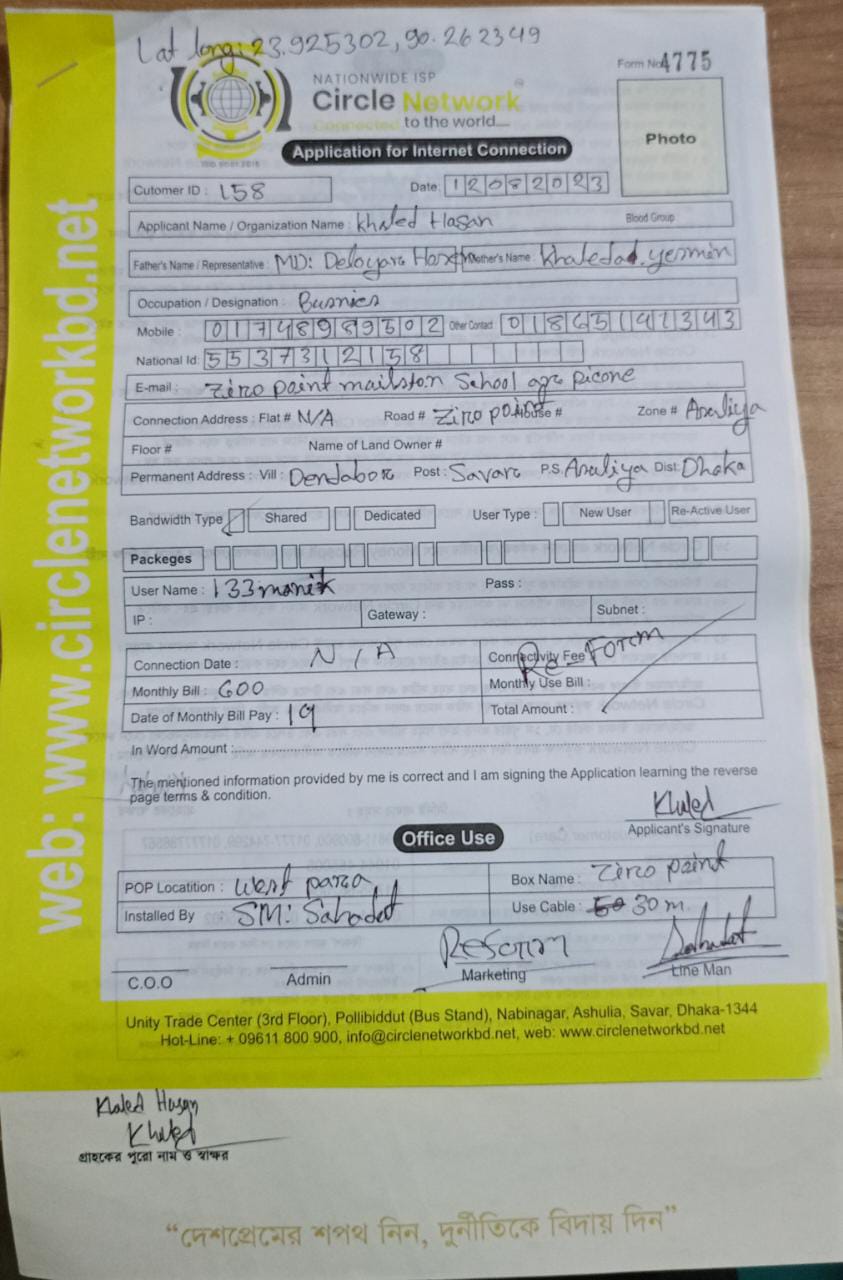 Lat long: 23.925302, 90.262349
Form No 4775
NATIONWIDE ISP
Circle Network
Connected to the world....
ISO 9001:2015
Application for Internet Connection
Photo
Cutomer ID : 158 Date: 12082023
Applicant Name / Organization Name : Khaled Hasan Blood Group
Father's Name / Representative : MD: Deloyara Mother's Name : Khaleda yesmin
Occupation / Designation : Busnies
Mobile : 01748989502 Other Contact 01865141343
National Id: 5537312158
E-mail : Ziro point mailston School
Connection Address : Flat # N/A Road # Ziro point House # Zone # Asuliya
Floor # Name of Land Owner #
Permanent Address : Vill : Dendabor Post : Savar P.S. Asuliya Dist: Dhaka
Bandwidth Type Shared Dedicated User Type : New User Re-Active User
Packeges
User Name : 133manik Pass :
IP : Gateway : Subnet :
Connection Date : N/A Connectivity Fee Re Form
Monthly Bill : 600 Monthly Use Bill :
Date of Monthly Bill Pay : 19 Total Amount :
In Word Amount :
The mentioned information provided by me is correct and I am signing the Application learning the reverse
page terms & condition.
Khaled
Applicant's Signature
Office Use
POP Locatition : West para Box Name : Ziro point
Installed By SM: Sahadat Use Cable : 50 30 m
Sahadat
C.O.O Admin Marketing Line Man
Unity Trade Center (3rd Floor), Pollibiddut (Bus Stand), Nabinagar, Ashulia, Savar, Dhaka-1344
Hot-Line: + 09611 800 900, info@circlenetworkbd.net, web: www.circlenetworkbd.net
web: www.circlenetworkbd.net
Khaled Hasan
Khaled
গ্রাহকের পুরো নাম ও স্বাক্ষর
“দেশপ্রেমের শপথ নিন, দুর্নীতিকে বিদায় দিন”